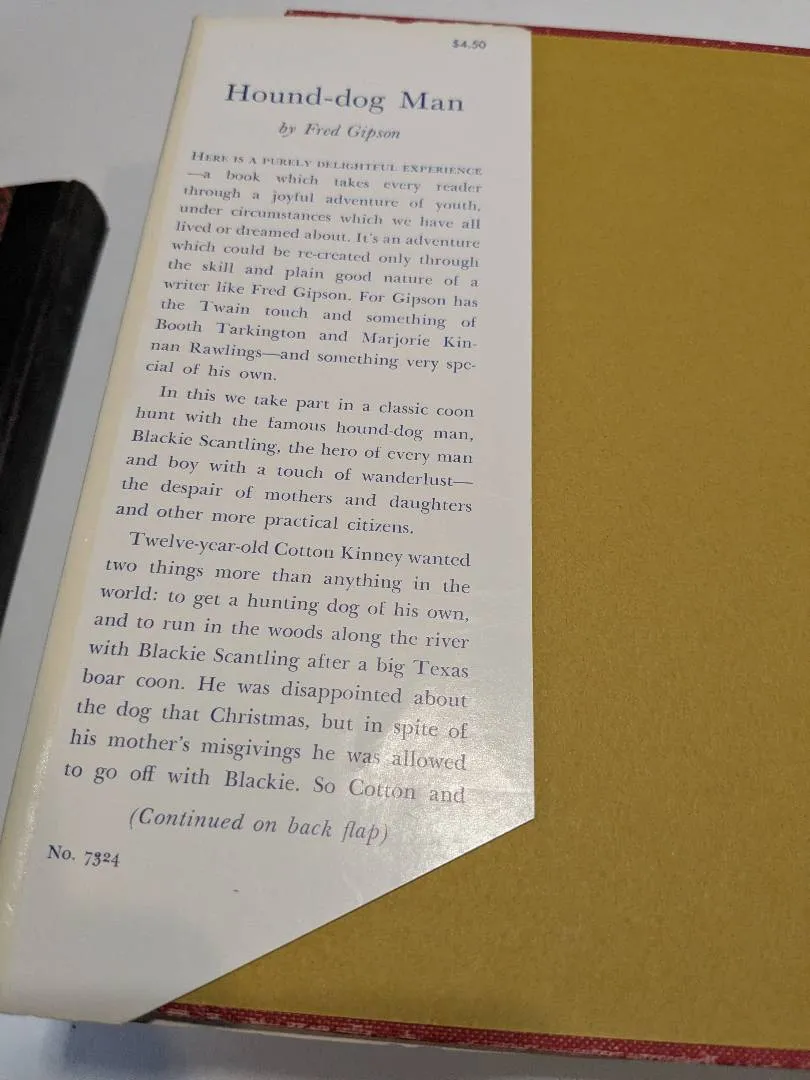 $4.50
Hound-dog Man
by Fred Gipson
HERE IS A PURELY DELIGHTFUL EXPERIENCE
—a book which takes every reader
through a joyful adventure of youth,
under circumstances which we have all
lived or dreamed about. It's an adventure
which could be re-created only through
the skill and plain good nature of a
writer like Fred Gipson. For Gipson has
the Twain touch and something of
Booth Tarkington and Marjorie Kin-
nan Rawlings—and something very spe-
cial of his own.
In this we take part in a classic coon
hunt with the famous hound-dog man,
Blackie Scantling, the hero of every man
and boy with a touch of wanderlust—
the despair of mothers and daughters
and other more practical citizens.
Twelve-year-old Cotton Kinney wanted
two things more than anything in the
world: to get a hunting dog of his own,
and to run in the woods along the river
with Blackie Scantling after a big Texas
boar coon. He was disappointed about
the dog that Christmas, but in spite of
his mother's misgivings he was allowed
to go off with Blackie. So Cotton and
(Continued on back flap)
No. 7324